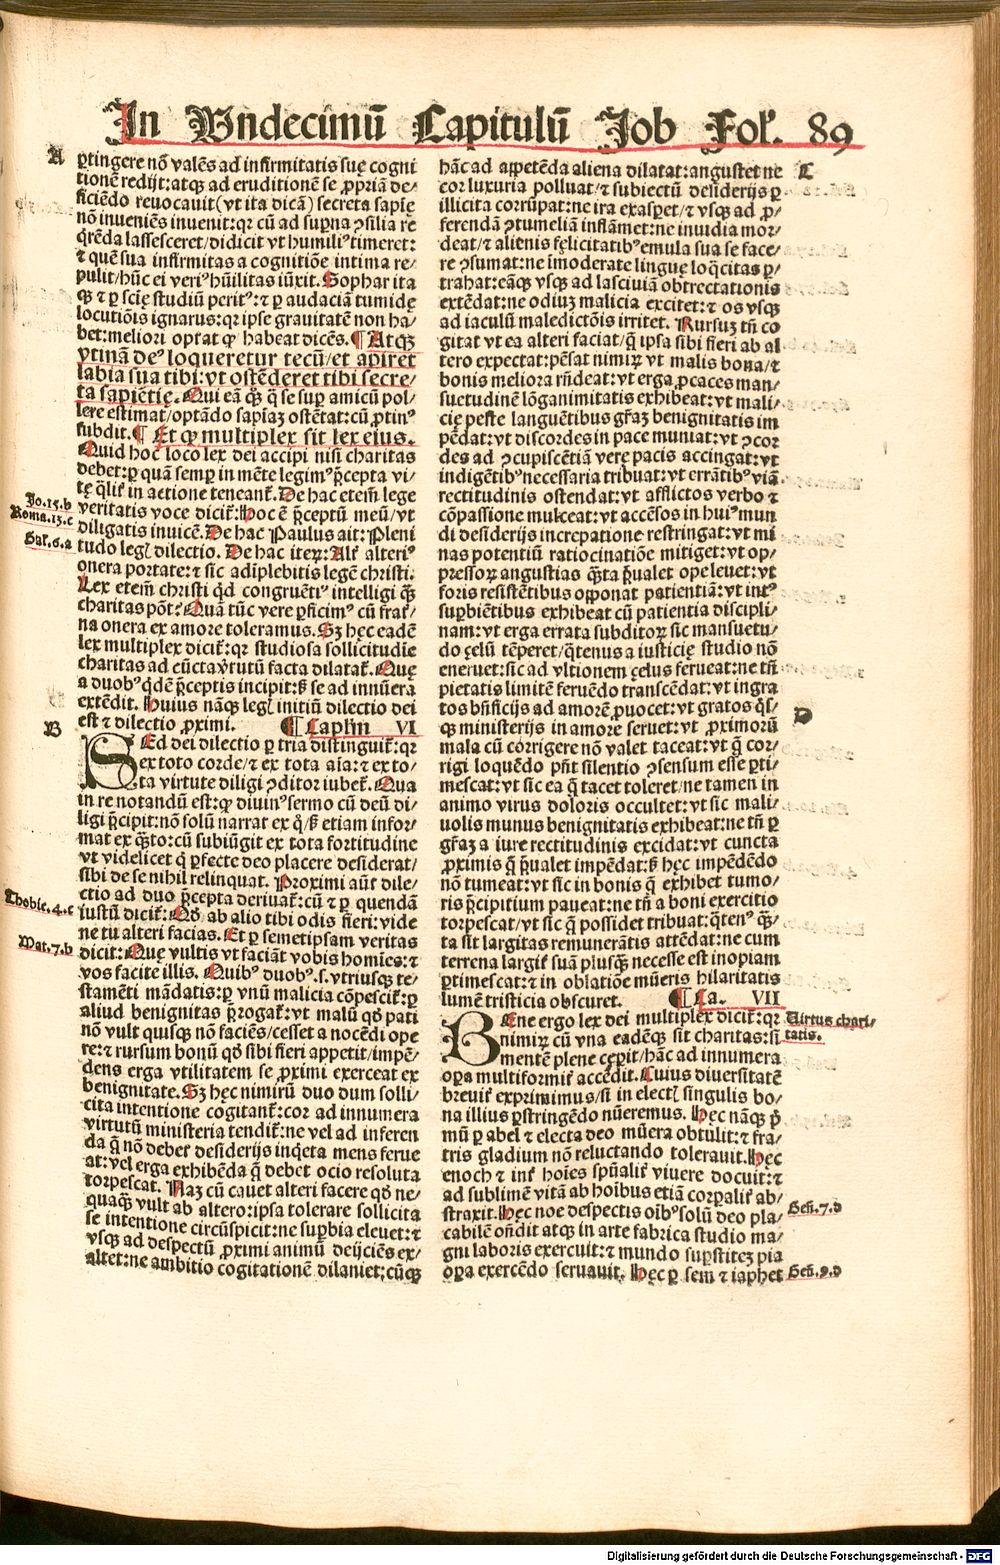 In Vndecimū Capitulū Job Fol. 89
A
ꝑtingere nō valēs ad infirmitatis suę cogni
tionē redijt: atqꝫ ad eruditionē se ꝓpriā de⸗
ficiēdo reuocauit (vt ita dicā) secreta sapię
nō inueniēs inuenit: qꝛ cū ad suꝑna ↄsilia re
q̄rēda lassesceret/didicit vt humiliꝰ timeret:
⁊ quē sua infirmitas a cognitiōe intima re⸗
pulit/hūc ei veriꝰ hūilitas iūxit. Sophar ita
qꝫ ⁊ ꝑ scię studiū peritꝰ: ⁊ ꝑ audaciā tumidę
locutiōis ignarus: qꝛ ipse grauitatē non ha⸗
bet: meliori optat ꝙ habeat dicēs. ¶ Atqꝫ
vtinā deꝰ loqueretur tecū/et apiret
labia sua tibi: vt ostēderet tibi secre⸗
ta sapiētię. Qui eā q̄ꝫ q̄ se suꝑ amicū pol⸗
lere estimat/optādo sapiaꝫ ostētat: cū ꝓtinꝰ
subdit. ¶ Et ꝙ multiplex sit lex eius.
Quid hoc loco lex dei accipi nisi charitas
debet: ꝑ quā semꝑ in mēte legimꝰ p̄cepta vi⸗
tę q̄lit̛ in actione teneant̛. De hac etem̄ lege
veritatis voce dicit̛: Hoc ē p̄ceptū meū/vt
Jo.15.b
diligatis inuicē. De hac Paulus ait: Pleni
Roma.13.c
tudo legꝭ dilectio. De hac iteꝝ: Alt̛ alteriꝰ
Gal̛.6.a
onera portate: ⁊ sic adīplebitis legē christi.
Lex etem̄ christi qd̄ congruētiꝰ intelligi q̄ꝫ
charitas pōt? Quā tūc vere ꝑficimꝰ cū frat̛⸗
na onera ex amore toleramus. Sꝫ hec eadē
lex multiplex dicit̛: qꝛ studiosa sollicitudie
charitas ad cūcta v̄rtutū facta dilatat̛. Quę
a duobꝰ q̄dē p̄ceptis incipit: sꝫ se ad innūera
extēdit. Huius nāqꝫ legꝭ initiū dilectio dei
est ⁊ dilectio ꝓximi. ¶ Caplm̄ VI
B
SEd dei dilectio ꝑ tria distinguit̛: qꝛ
ex toto corde/⁊ ex tota aīa: ⁊ ex to⸗
ta virtute diligi ↄditor iubet̛. Qua
in re notandū est: ꝙ diuinꝰ sermo cū deū di⸗
ligi p̄cipit: nō solū narrat ex q̊/sꝫ etiam infor⸗
mat ex q̄ꝫto: cū subiūgit ex tota fortitudine
vt videlicet q̇ ꝑfecte deo placere desiderat/
sibi de se nihil relinquat. Proximi aūt dile⸗
ctio ad duo p̄cepta deriuat̛: cū ⁊ ꝑ quendā
iustū dicit̛: Qd̄ ab alio tibi odis fieri: vide
Thobie.4.c
ne tu alteri facias. Et ꝑ semetipsam veritas
dicit: Quę vultis vt faciāt vobis homīes: ⁊
Mat.7.b
vos facite illis. Quibꝰ duobꝰ.s. vtriusqꝫ te⸗
stamēti mādatis: ꝑ vnū malicia cōpescit̛: ꝑ
aliud benignitas p̄rogat̛: vt malū qd̄ pati
nō vult quisqꝫ nō faciēs/cesset a nocēdi ope
re: ⁊ rursum bonū qd̄ sibi fieri appetit/impē⸗
dens erga vtilitatem se ꝓximi exerceat ex
benignitate. Sꝫ hęc nimirū duo dum solli⸗
cita intentione cogitant̛: cor ad innumera
virtutū ministeria tendit̛: ne vel ad inferen
da q̄ nō debet desiderijs inq̇eta mens ferue
at: vel erga exhibēda q̄ debet ocio resoluta
torpescat. Naꝫ cū cauet alteri facere qd̄ ne⸗
quaqꝫ vult ab altero: ipsa tolerare sollicita
se intentione circūspicit: ne suꝑbia eleuet: ⁊
vsqꝫ ad despectū ꝓximi animū deijciēs ex⸗
altet: ne ambitio cogitationē dilaniet; cūqꝫ
C
hāc ad appetēda aliena dilatat: angustet ne
cor luxuria polluat/⁊ subiectū desiderijs ꝑ
illicita corrūpat: ne ira exasperet/⁊ vsqꝫ ad ꝓ⸗
ferendā ↄtumeliā inflāmet: ne inuidia mor⸗
deat/⁊ alienis fęlicitatibꝰ emula sua se face⸗
re ↄsumat: ne īmoderate linguę loq̄citas ꝑ⸗
trahat: eāqꝫ vsqꝫ ad lasciuiā obtrectationis
extēdat: ne odiuꝫ malicia excitet: ⁊ os vsqꝫ
ad iaculū maledictōis irritet. Rursuꝫ tn̄ co
gitat vt ea alteri faciat/q̄ ipsa sibi fieri ab al
tero expectat: pēsat nimiꝝ vt malis bona/⁊
bonis meliora rn̄deat: vt erga ꝓcaces man⸗
suetudinē lōganimitatis exhibeat: vt mali⸗
cię peste languētibus gr̄aꝫ benignitatis im
pēdat: vt discordes in pace muniat: vt ↄcor
des ad ↄcupiscētiā verę pacis accingat: vt
indigētibꝰ necessaria tribuat: vt errātibꝰ viā
rectitudinis ostendat: vt afflictos verbo ⁊
cōpassione mulceat: vt accēsos in huiꝰ mun
di desiderijs increpatione restringat: vt mi
nas potentiū ratiocinatiōe mitiget: vt op⸗
pressoꝝ angustias q̄ꝫta p̄ualet ope leuet: vt
foris resistētibus opponat patientiā: vt intꝰ
suꝑbiētibus exhibeat cū patientia discipli⸗
nam: vt erga errata subditoꝝ sic mansuetu⸗
do ęelū tēperet/q̇tenus a iusticię studio nō
eneruet: sic ad vltionem ęelus ferueat: ne tn̄
pietatis limitē feruēdo transcēdat: vt ingra
tos bn̄ficijs ad amorē ꝓuocet: vt gratos q̊sꝫ⸗
D
qꝫ ministerijs in amore seruet: vt ꝓximorū
mala cū corrigere nō valet taceat: vt q̄ cor⸗
rigi loquēdo pn̄t silentio ↄsensum esse ꝑti⸗
mescat: vt sic ea q̄ tacet toleret/ne tamen in
animo virus doloris occultet: vt sic mali⸗
uolis munus benignitatis exhibeat: ne tn̄ ꝑ
gr̄aꝫ a iure rectitudinis excidat: vt cuncta
ꝓximis q̄ p̄ualet impēdat: sꝫ hęc impēdēdo
nō tumeat: vt sic in bonis q̄ exhibet tumo⸗
ris p̄cipitium paueat: ne tn̄ a boni exercitio
torpescat/vt sic q̄ possidet tribuat: q̇tenꝰ q̄ꝫ⸗
ta sit largitas remunerātis attēdat: ne cum
terrena largit̛ suā plusqꝫ necesse est inopiam
ꝑtimescat: ⁊ in oblatiōe mūeris hilaritatis
lumē tristicia obscuret. ¶ Ca. VII
BEne ergo lex dei multiplex dicit̛: qꝛ
Virtus chari⸗
tatis.
nimiꝝ cū vna eadēqꝫ sit charitas: si
mentē plene cępit/hāc ad innumera
opa multiformit̛ accēdit. Cuius diuersitatē
breuit̛ exprimimus/si in electꝭ singulis bo⸗
na illius ꝑstringēdo nūeremus. Hęc nāqꝫ p̄
mū ꝑ abel ⁊ electa deo mūera obtulit: ⁊ fra⸗
tris gladium nō reluctando tolerauit. Hęc
enoch ⁊ int̛ hoīes spūalit̛ viuere docuit: ⁊
ad sublimē vitā ab hoībus etiā corpalit̛ ab⸗
straxit. Hęc noe despectis oībꝰ solū deo pla⸗
Geñ.7.d
cabilē on̄dit atqꝫ in arte fabrica studio ma⸗
gni laboris exercuit: ⁊ mundo suꝑstiteꝫ pia
opa exercēdo seruauit. Hęc ꝑ sem ⁊ iaphet
Geñ.9.d
Digitalisierung gefördert durch die Deutsche Forschungsgemeinschaft - DFG